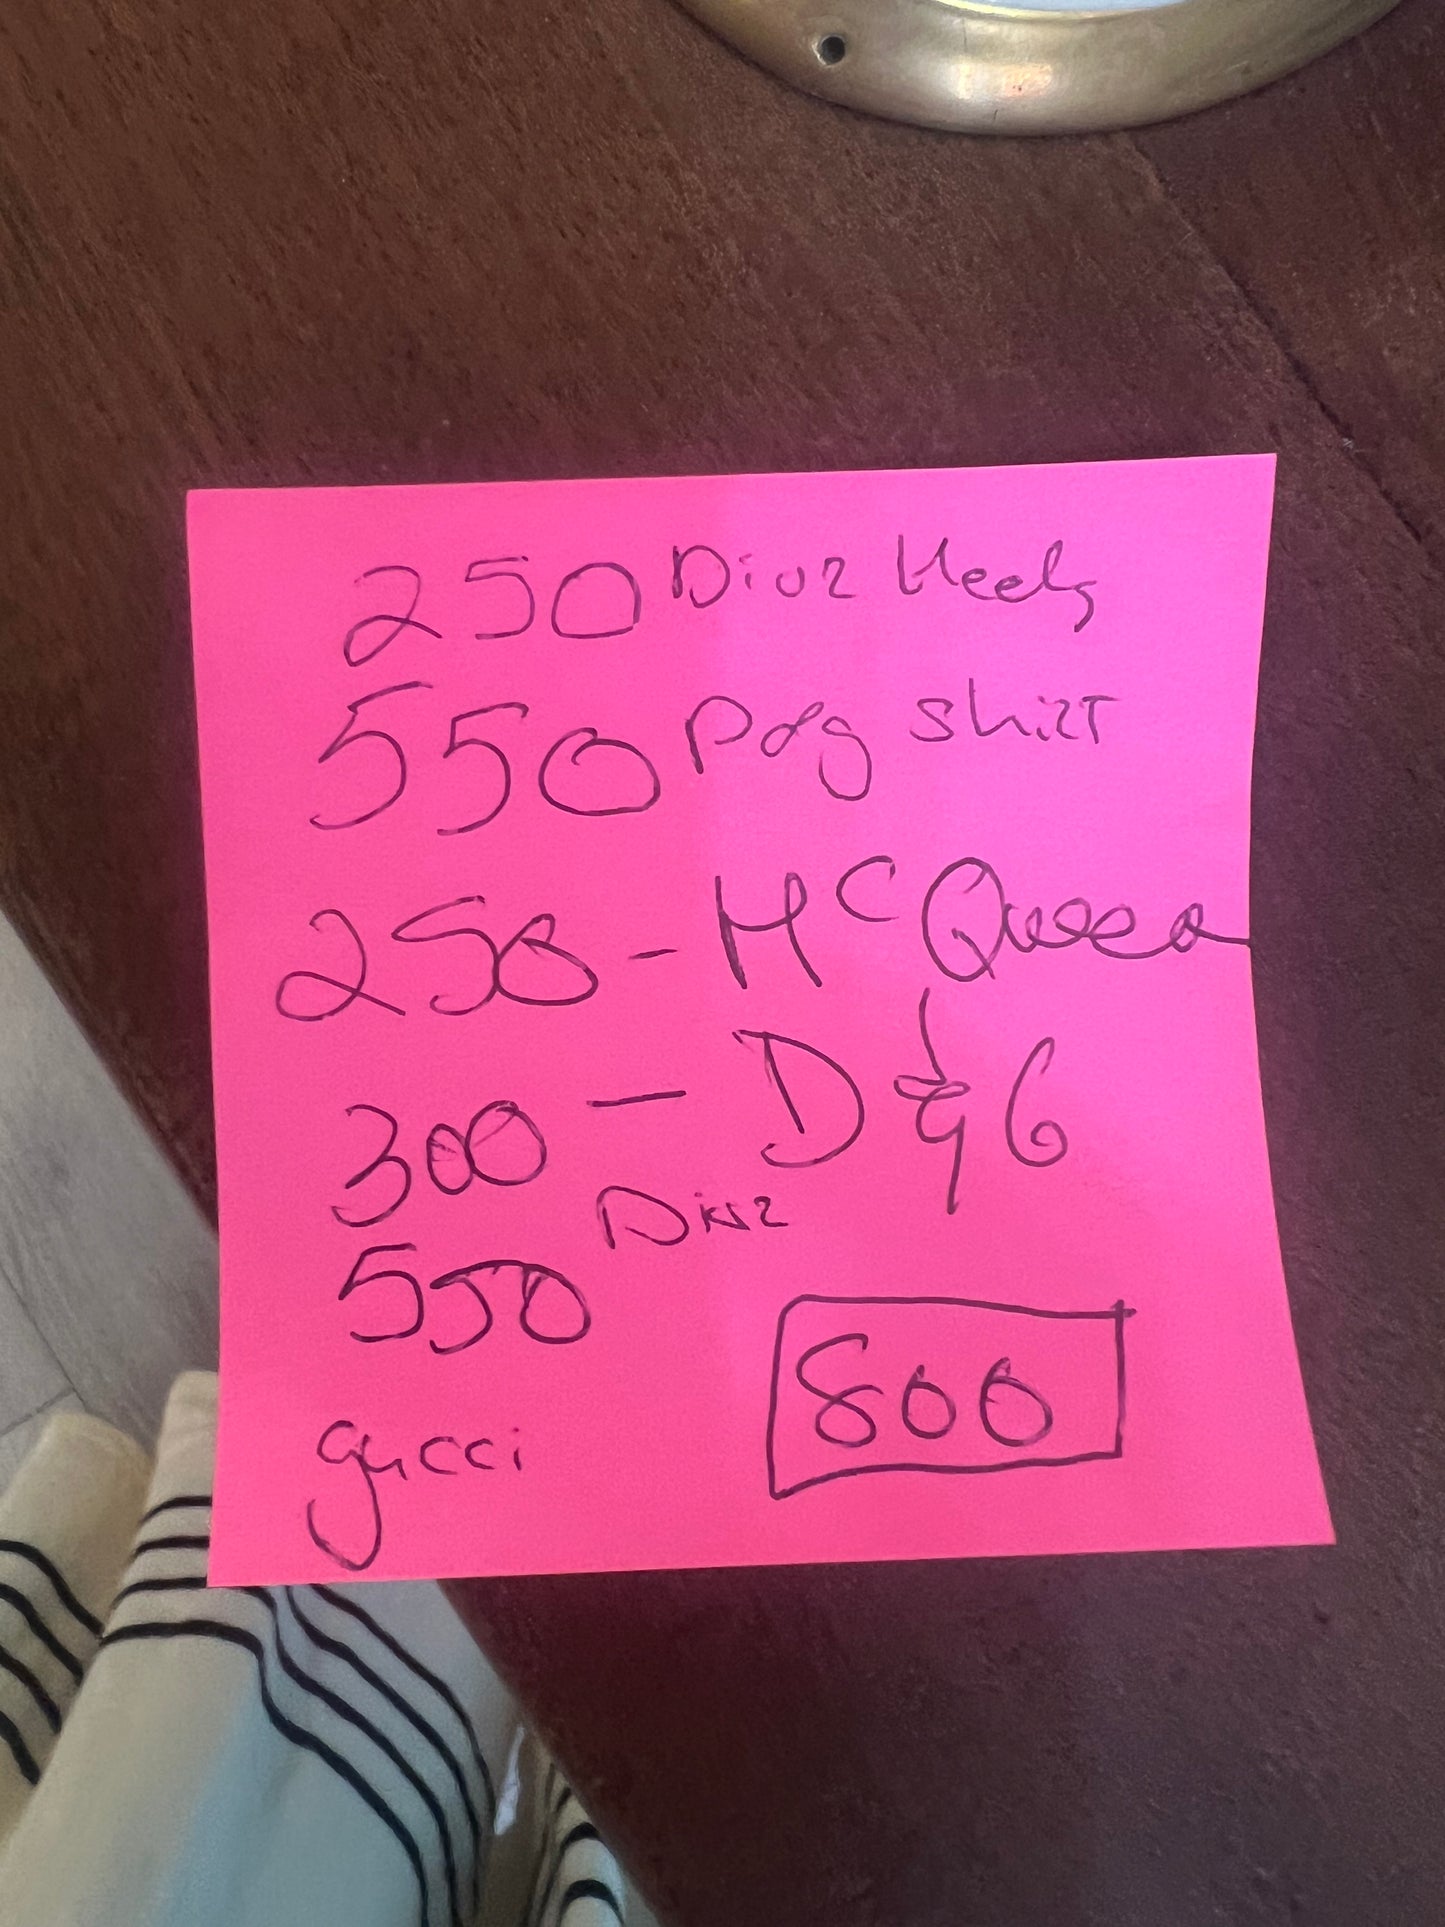 250 Dior Heels
550 Dog shirt
250 - McQueen
300 - D&G
550 Dior
800
gucci